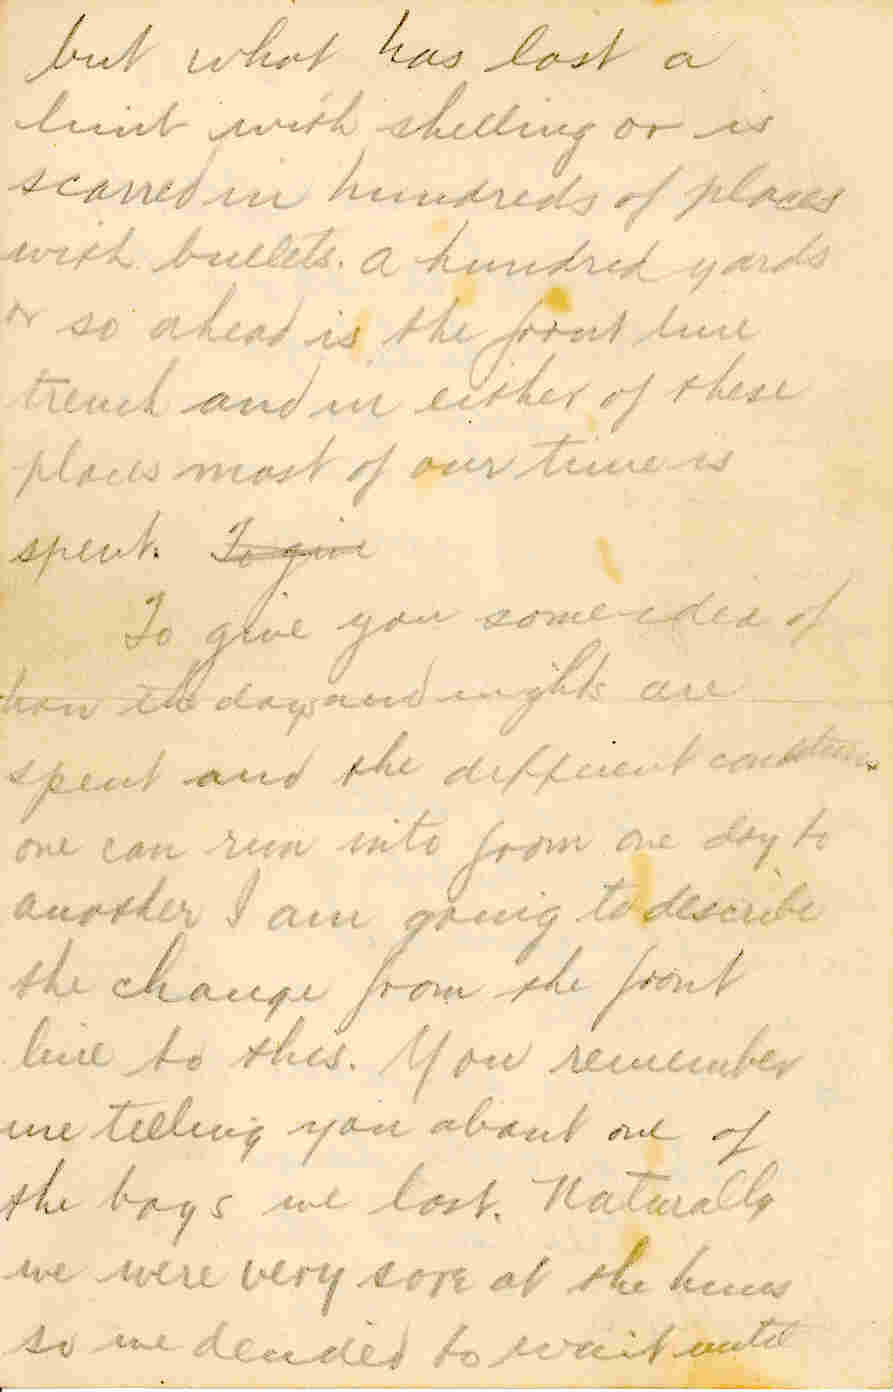 but what has lost a
limb with shelling or is
scarred in hundreds of places
with bullets. A hundred yards
or so ahead is the front line
trench and in either of these
places most of our time is
spent. To give
To give you some idea of
how the days and nights are
spent and the different conditions
one can run into from one day to
another I am going to describe
the change from the front
line to this. You remember
me telling you about one of
the boys we lost. Naturally
we were very sore at the huns
so we decided to wait until